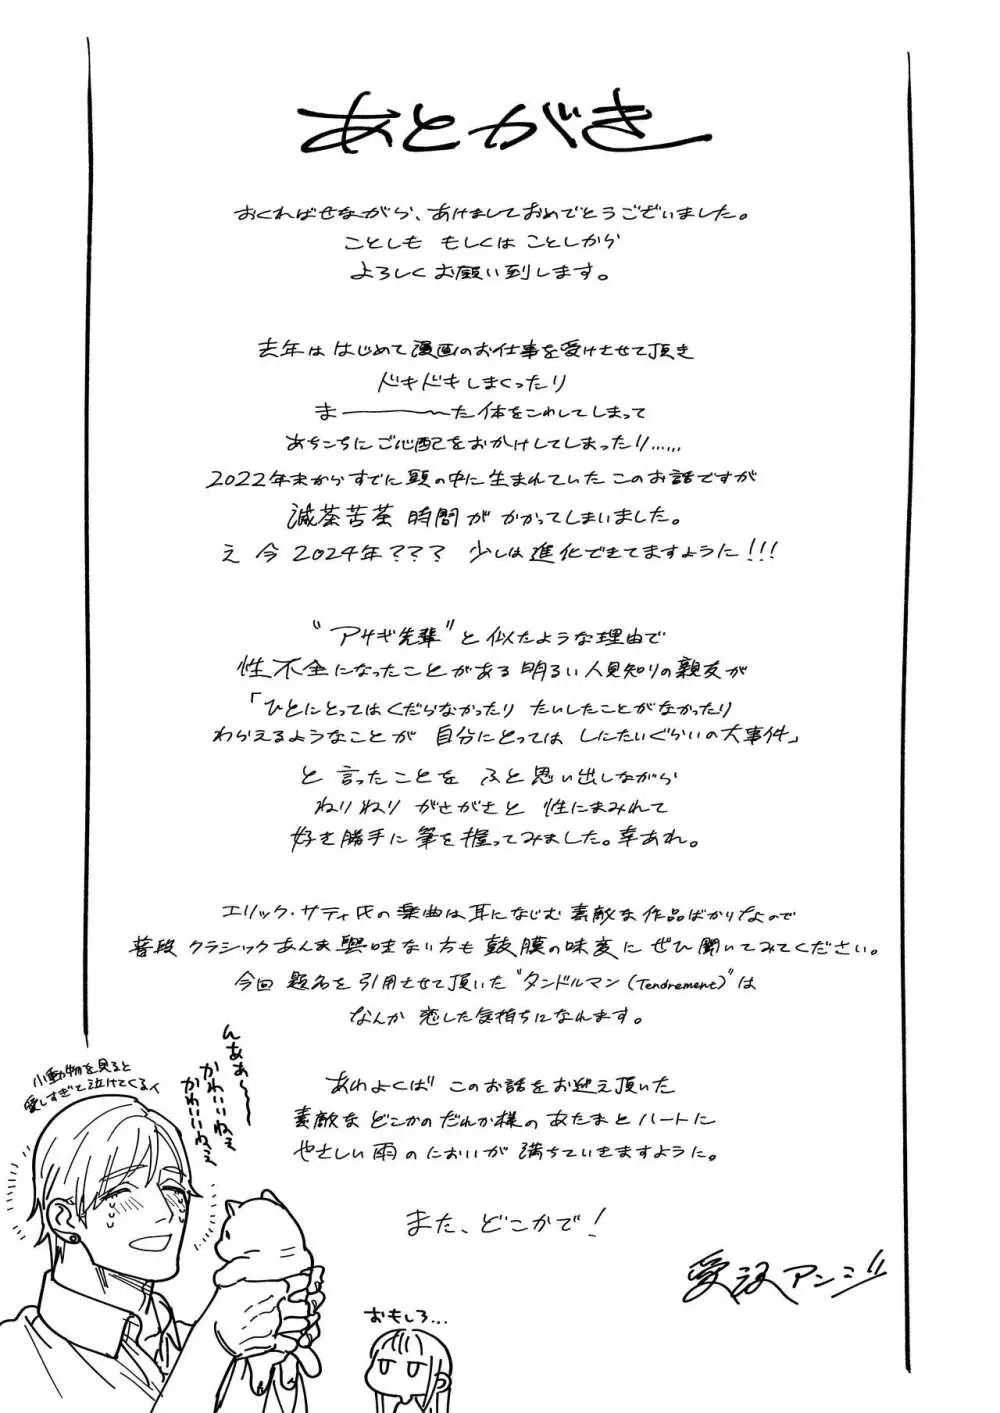 あとがき
おくればせながら、あけましておめでとうございました。
ことしも もしくは ことしから
よろしくお願い到します。
去年は はじめて漫画のお仕事を受けさせて頂き
ドキドキしまくったり
ま――――〜た体をこわしてしまって
あちこちにご心配をおかけしてしまったり……
2022年末からすでに頭の中に生まれていた このお話ですが
滅茶苦茶 時間が かかってしまいました。
え 今 2024年??? 少しは進化できてますように!!!
“アサギ先輩”と似たような理由で
性不全になったことがある明るい人見知りの親友が
「ひとにとってはくだらなかったり たいしたことがなかったり
わらえるようなことが 自分にとっては しにたいぐらいの大事件」
と 言ったことを ふと思い出しながら
ねりねり がさがさと 性にまみれて
好き勝手に筆を握ってみました。幸あれ。
エリック・サティ氏の楽曲は耳になじむ素敵な作品ばかりなので
普段 クラシックあんま興味ない方も 鼓膜の味変に ぜひ聞いてみてください。
今回 題名を 引用させて頂いた“タンドルマン(Tendrement)”は
なんか 恋した気持ちになれます。
あわよくば このお話をお迎え頂いた
素敵な どこかのだれか様の あたまとハートに
やさしい雨のにおいが 満ちていきますように。
また、どこかで!
愛沢アンジ
小動物を見ると
愛しすぎて泣けてくるイ
んああ〜――
かわいいねぇ
かわいいねぇ
おもしろ…